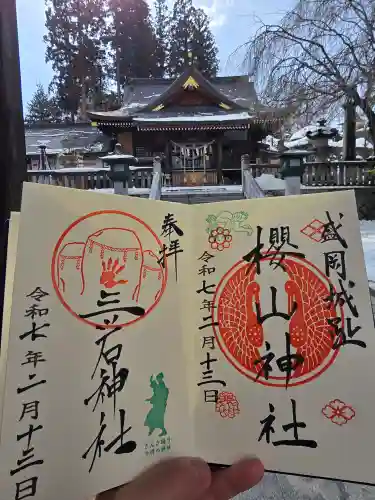 盛岡城址
櫻山神社
令和七年二月十三日
奉拝
三石神社
令和七年二月十三日